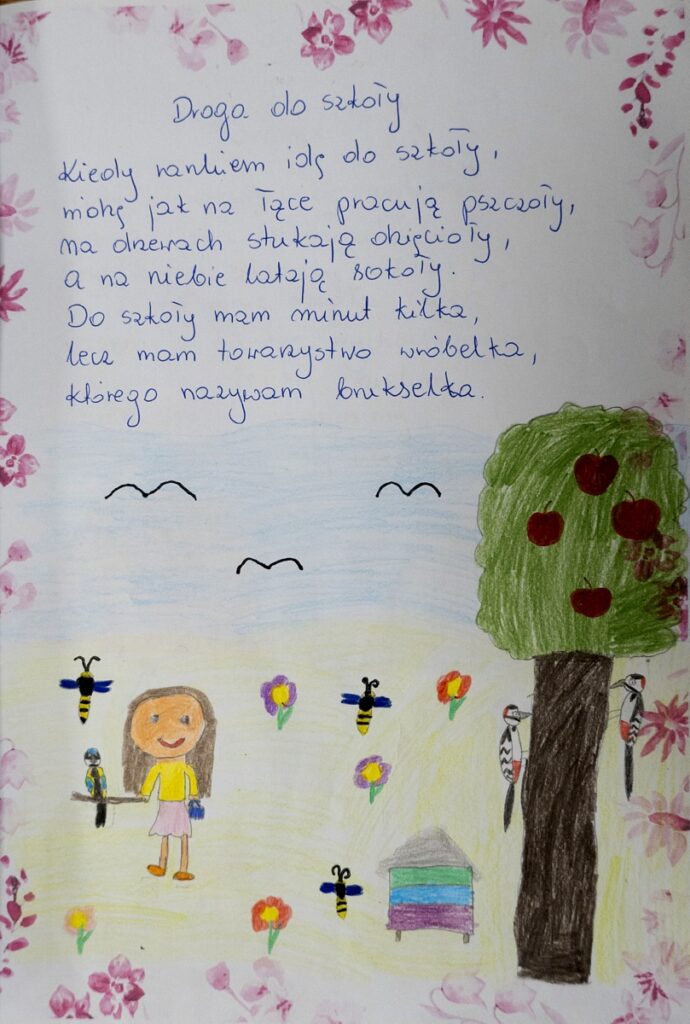 Droga do szkoły
Kiedy rankiem idę do szkoły,
widzę jak na łące pracują pszczoły,
na drzewach stukają dzięcioły,
a na niebie latają sokoły.
Do szkoły mam minut kilka,
lecz mam towarzystwo wróbelka,
którego nazywam brukselka.